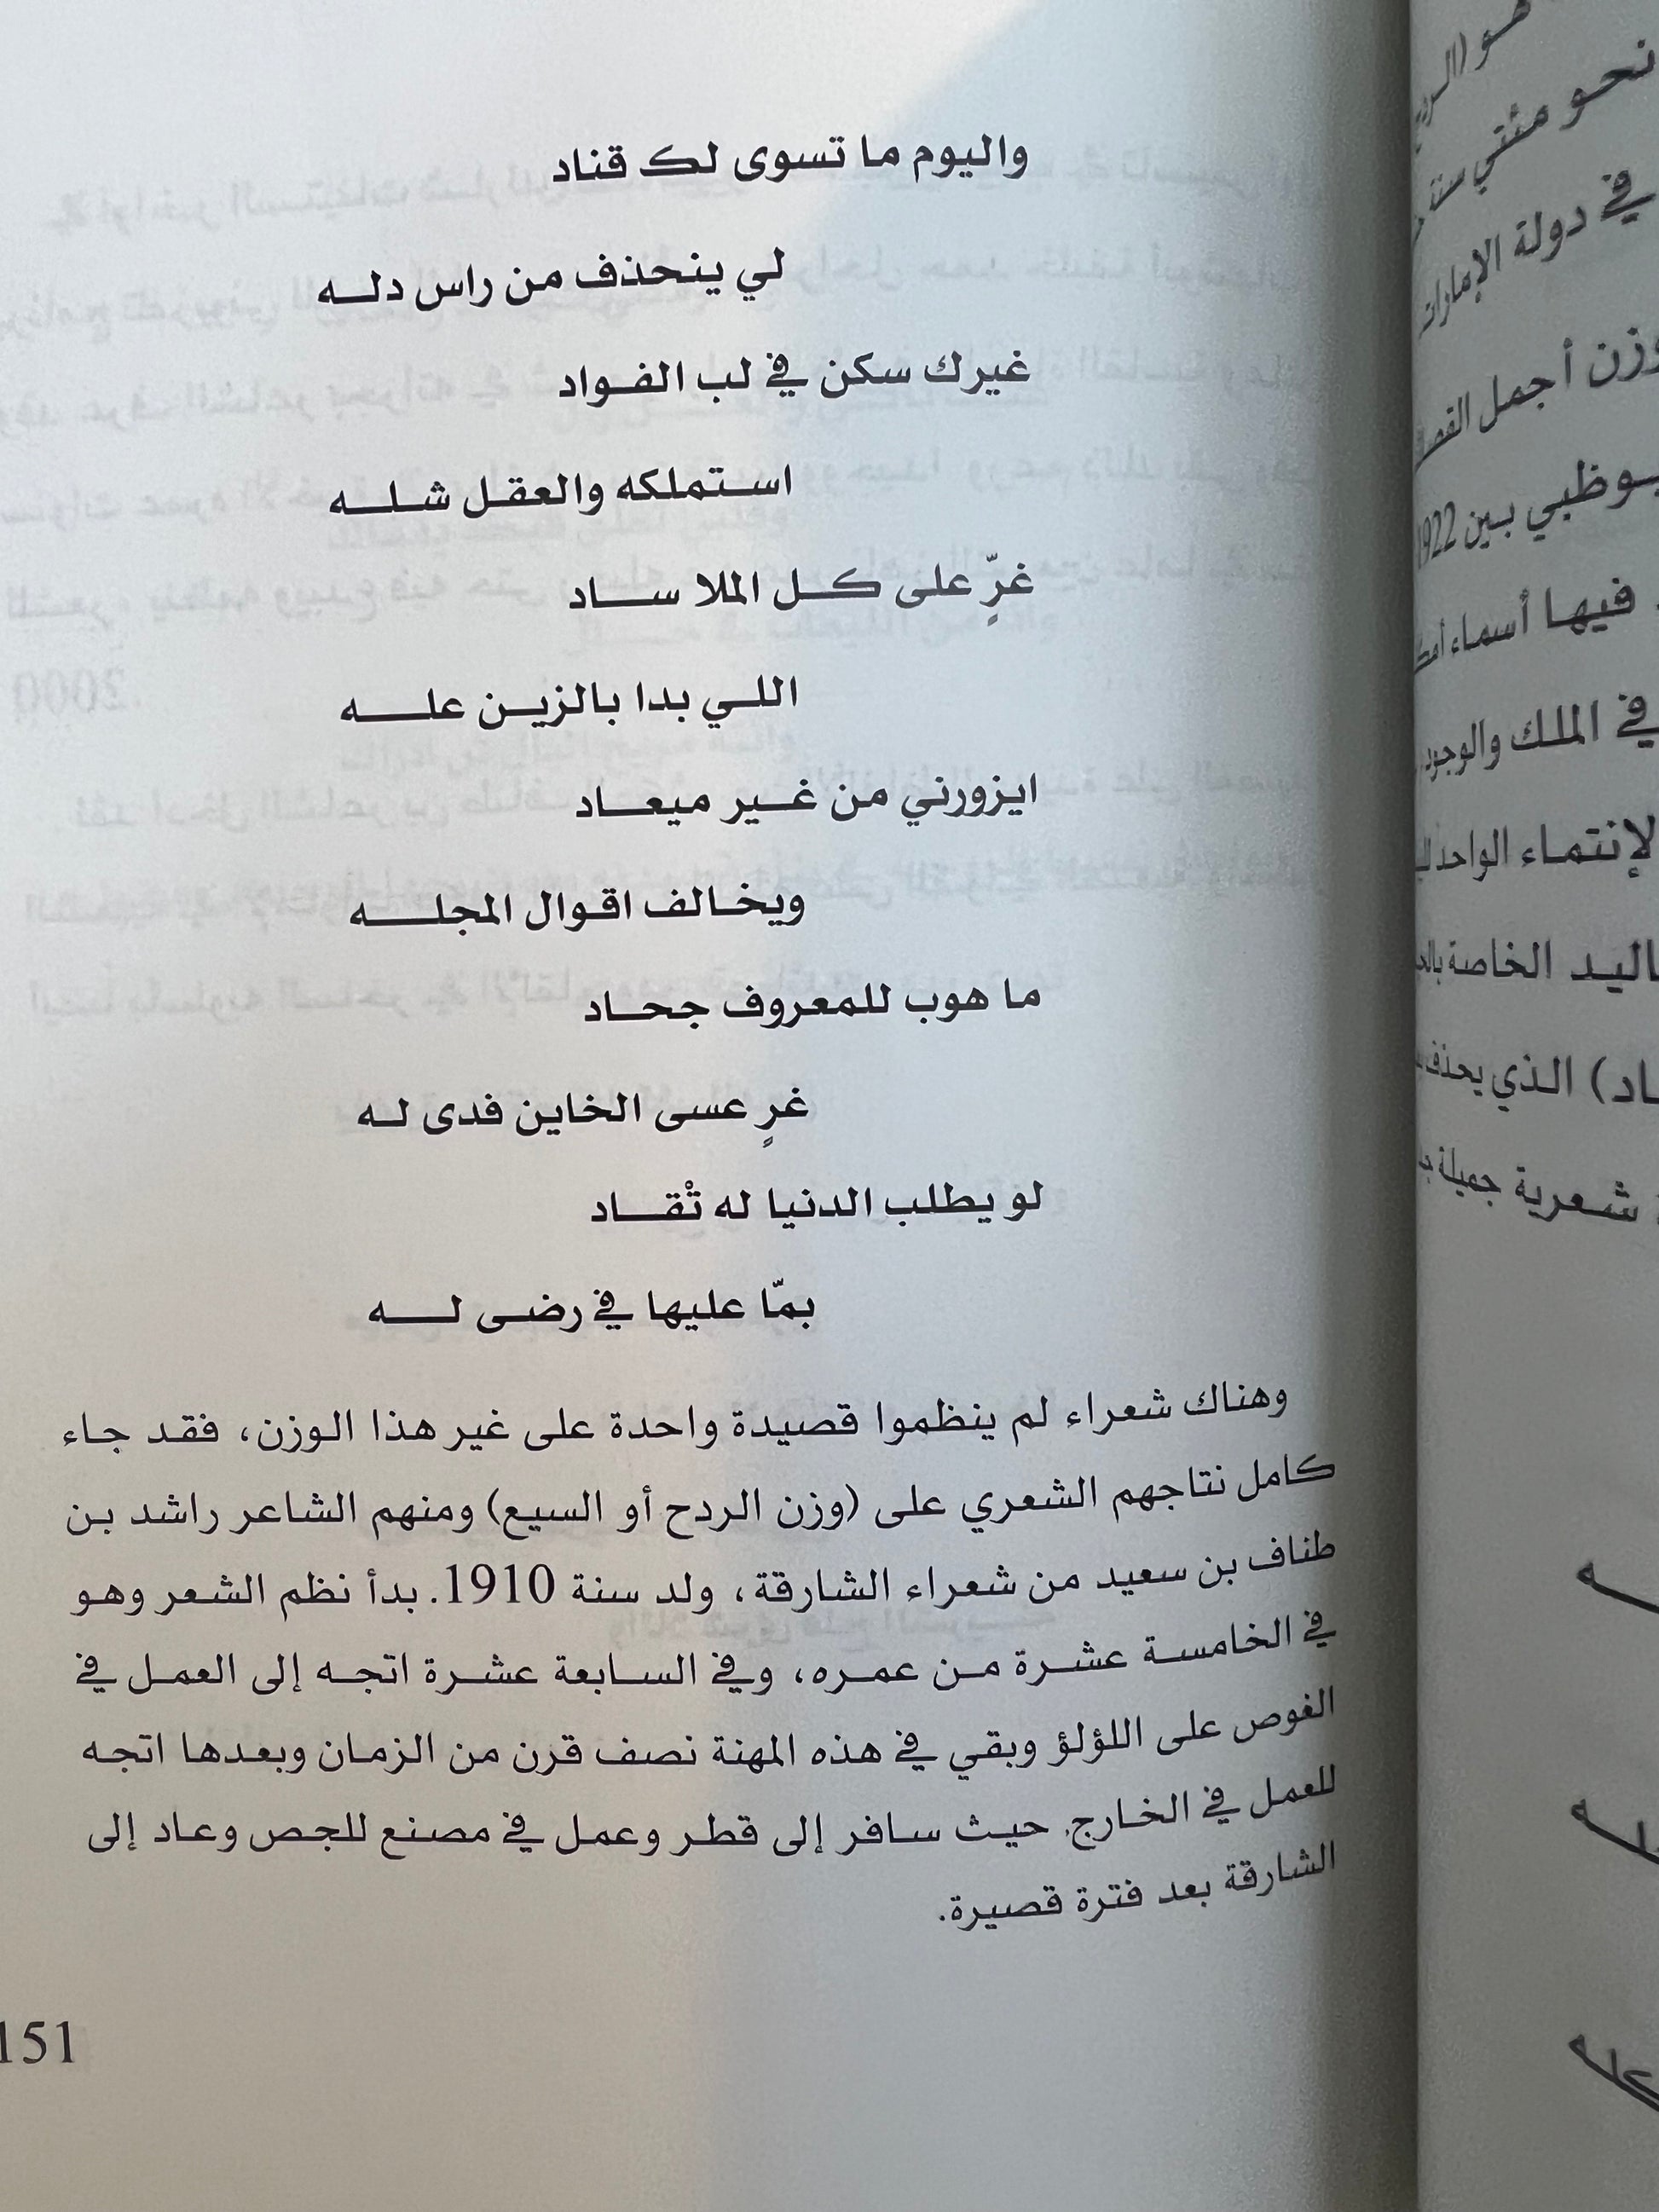 واليوم ما تسوى لك قناد
لي ينحذف من راس دلـه
غيرك سكن في لب الفـواد
استملكه والعقـل شلـه
غرٍّ على كـل الملا سـاد
اللـي بدا بالزيـن علـه
ايزورني من غـير ميعـاد
ويخـالف اقـوال المجلـه
ما هوب للمعروف جحـاد
غرٍ عسى الخاين فدى لـه
لو يطلب الدنيا له تْقـاد
بمّا عليها في رضـى لـه
وهناك شعراء لم ينظموا قصيدة واحدة على غير هذا الوزن، فقد جاء
كامل نتاجهم الشعري على (وزن الردح أو السيع) ومنهم الشاعر راشد بن
طناف بن سعيد من شعراء الشارقة، ولد سنة 1910. بدأ نظم الشعر وهو
في الخامسة عشرة من عمره، وفي السابعة عشرة اتجه إلى العمل في
الغوص على اللؤلؤ وبقي في هذه المهنة نصف قرن من الزمان وبعدها اتجه
للعمل في الخارج، حيث سافر إلى قطر وعمل في مصنع للجص وعاد إلى
الشارقة بعد فترة قصيرة.
151
نحو مئتي سنة
في دولة الإمارات
وزن أجمل
بوظبي بين 1922
فيها أسماء
في الملك والوجود
لإنتماء الواحد
الخاصة
اد) الذي يحذف
شعرية جميلة